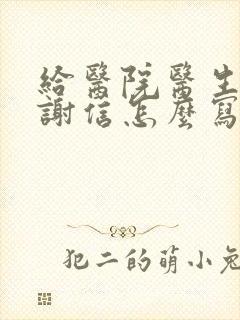 給醫院醫生
謝信怎麼寫
犯二的萌小兔